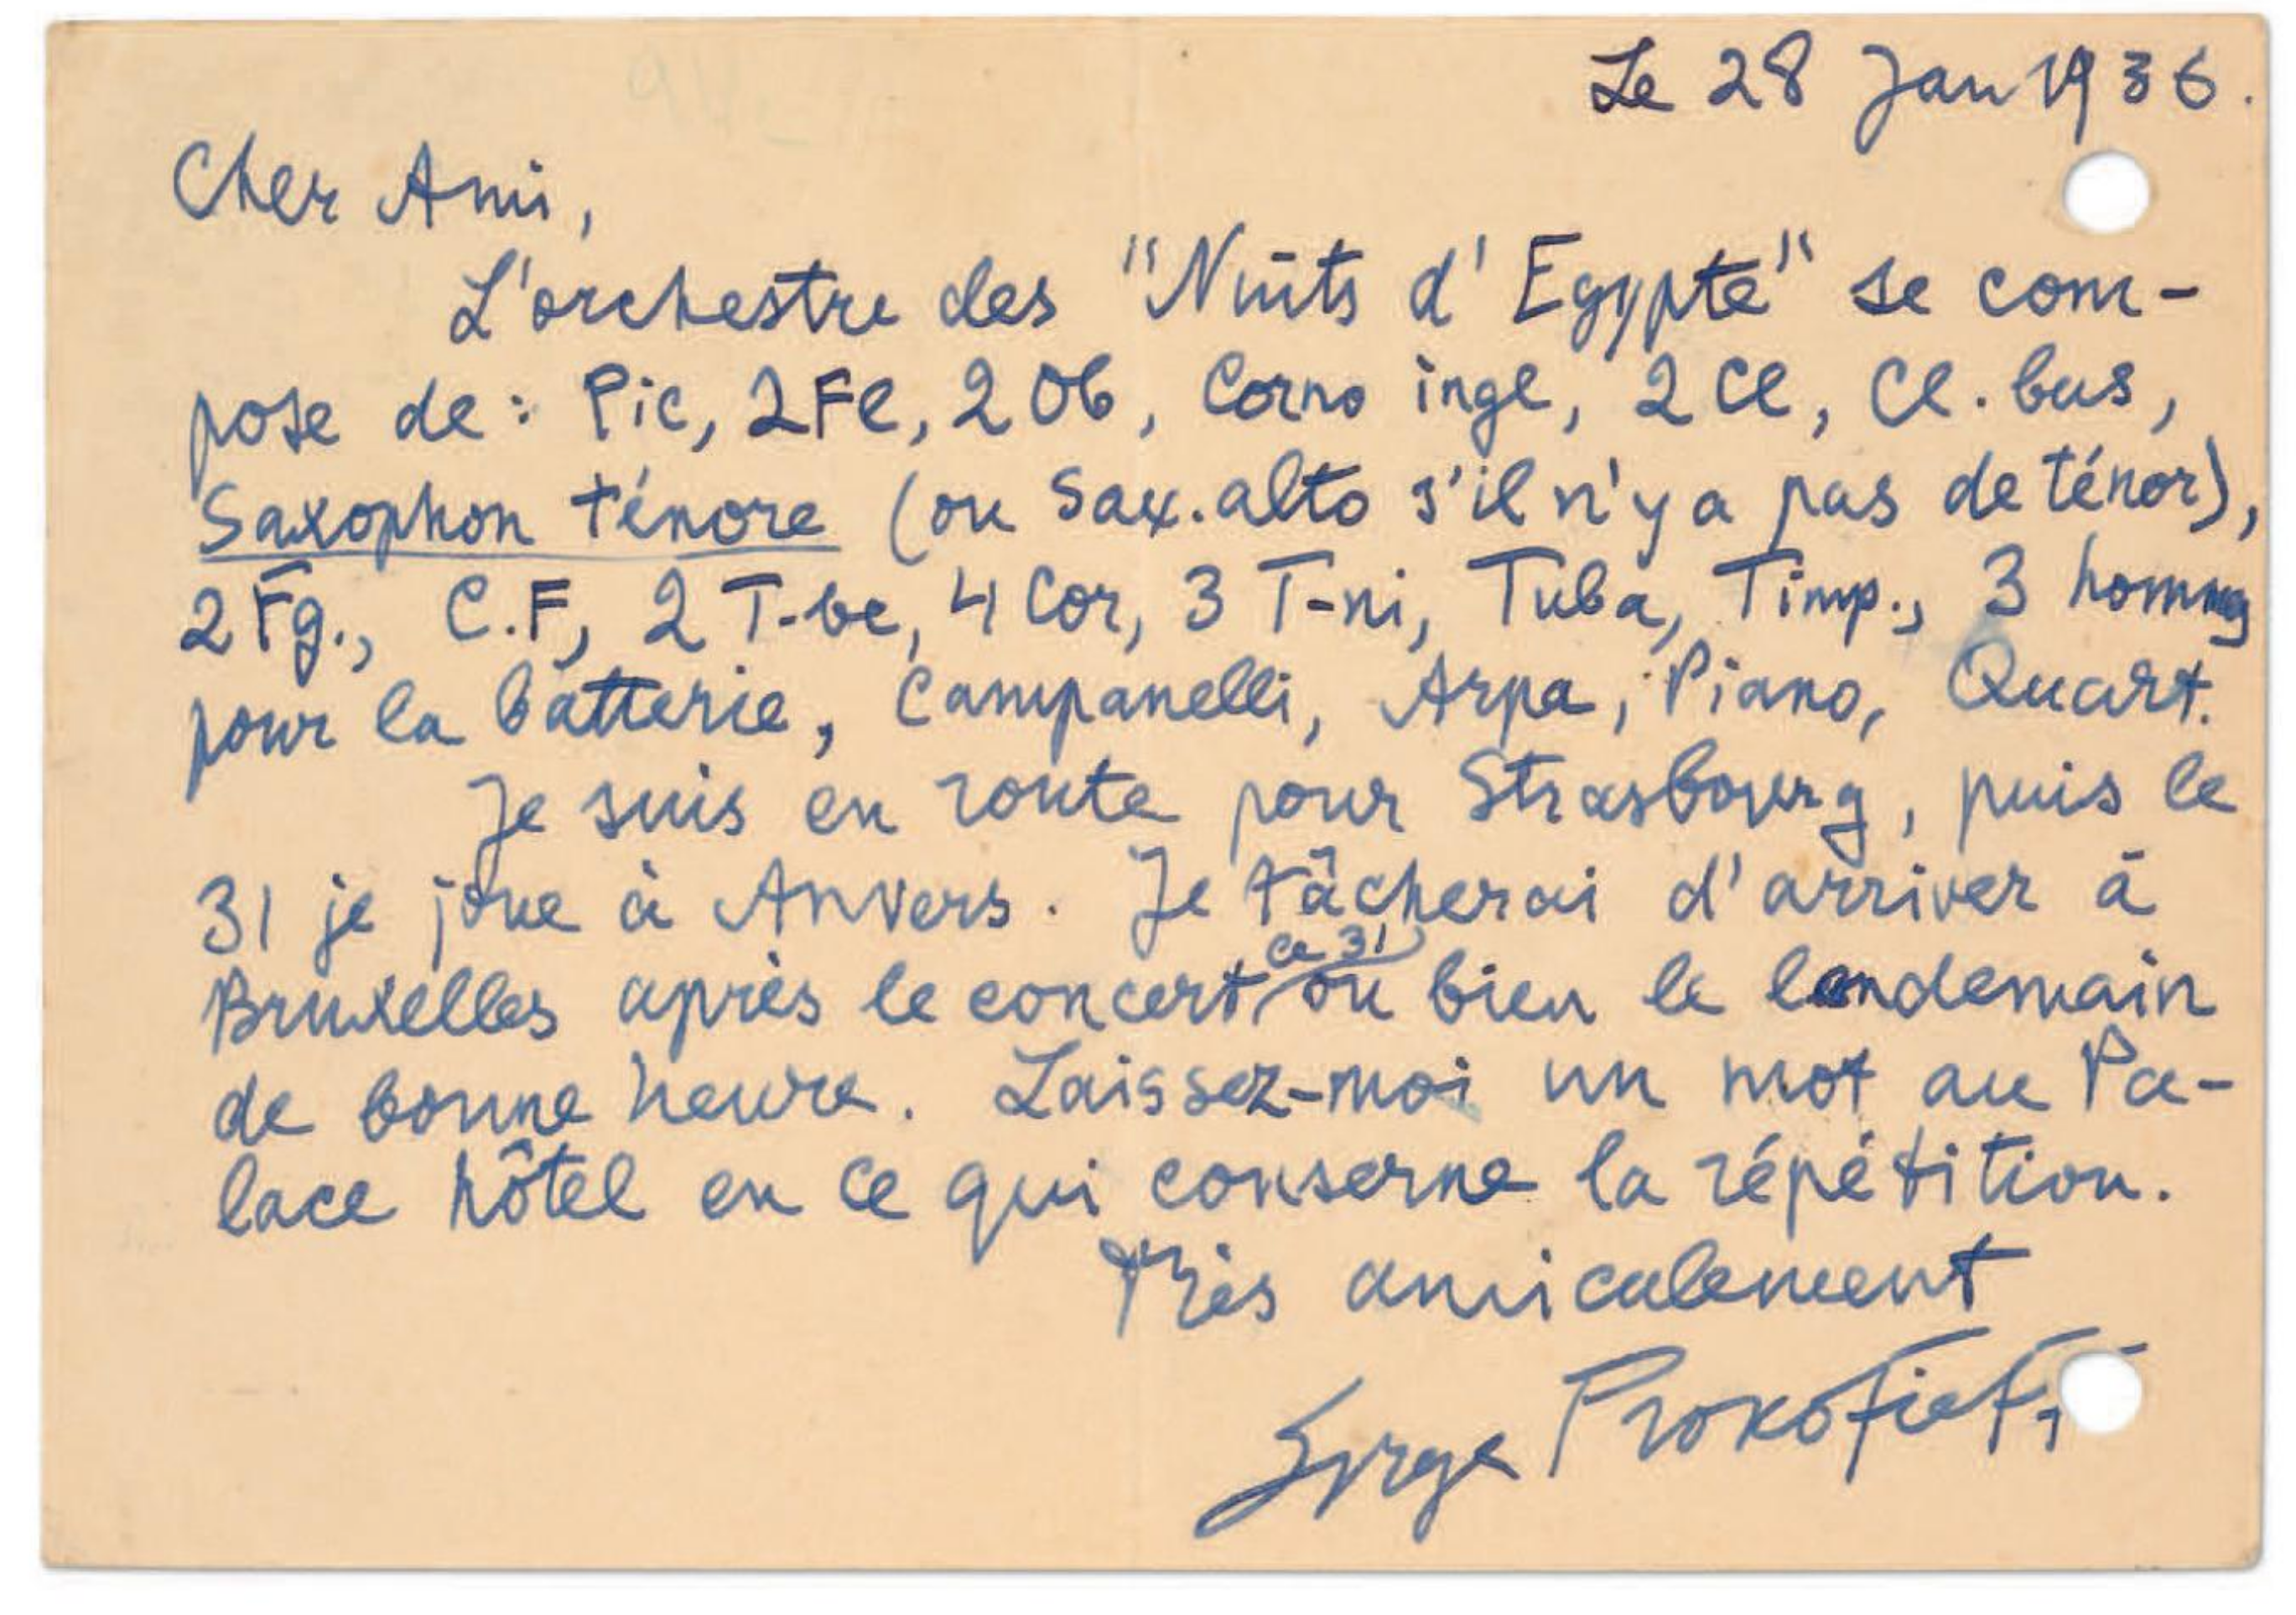 Le 28 Jan 1936.
Cher Ami,
L'orchestre des "Nuits d'Egypte" se com-
pose de: Pic, 2Fl, 2Ob, Corno ingl, 2Cl, Cl. bas,
Saxophon ténore (ou Sax. alto s'il n'y a pas de ténor),
2Fg., C.F, 2 T-be, 4 Cor, 3 T-ni, Tuba, Timp., 3 hommes
pour la batterie, Campanelli, Arpa, Piano, Quart.
Je suis en route pour Strasbourg, puis le
31 je joue à Anvers. Je tâcherai d'arriver à
ce 31
Bruxelles après le concert, ou bien le lendemain
de bonne heure. Laissez-moi un mot au Pa-
lace hôtel en ce qui conserne la répétition.
Très amicalement
Serge Prokofieff